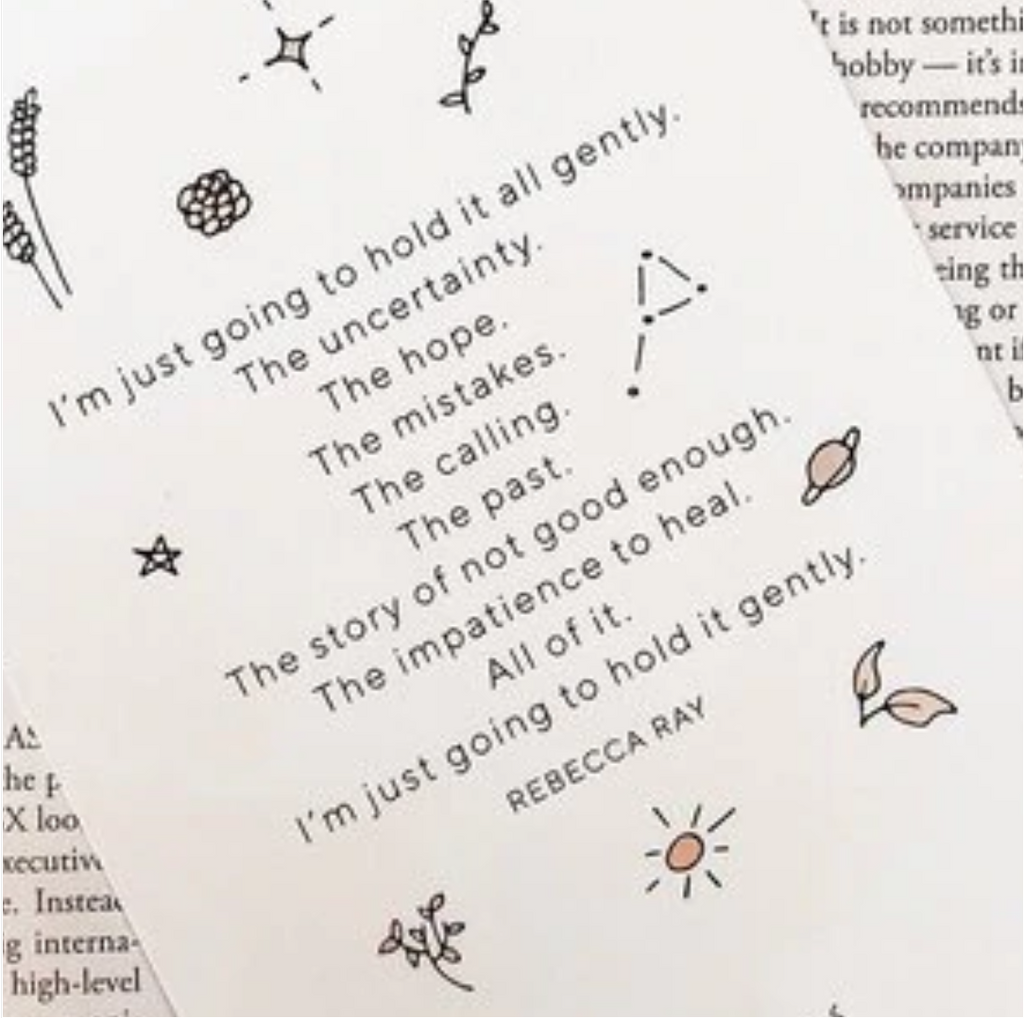 I'm just going to hold it all gently.
The uncertainty.
The hope.
The mistakes.
The calling.
The past.
The story of not good enough.
The impatience to heal.
All of it.
I'm just going to hold it gently.
REBECCA RAY
It is not
hobby — it's
recommends
the company
companies
service
or
loo
Instead
interna-
high-level